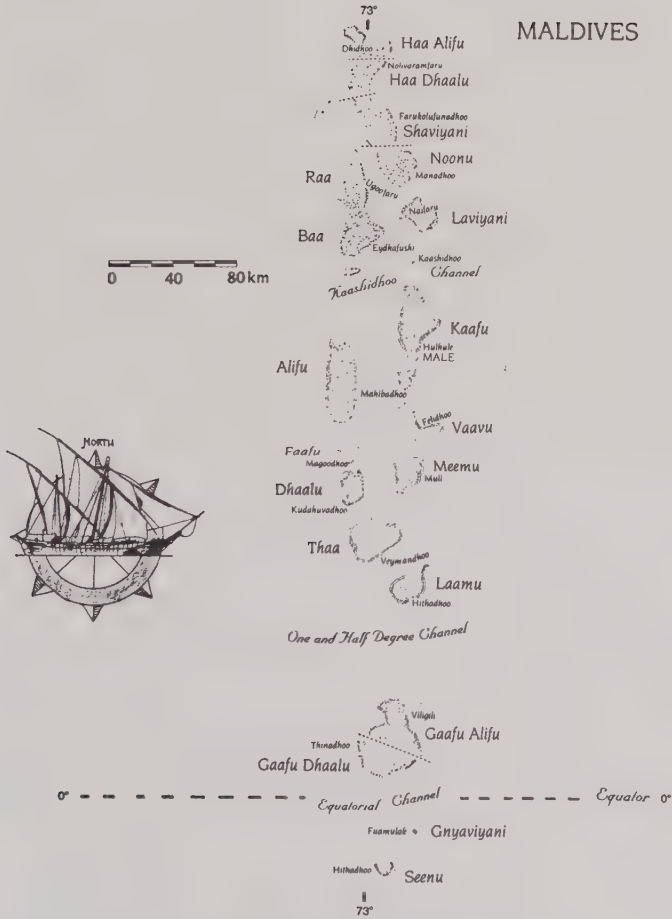 73°
MALDIVES
Dhidhoo
Haa Alifu
Nolivaramfaru
Haa Dhaalu
Farukolufunadhoo
Shaviyani
Noonu
Manadhoo
Raa
Ugoofaru
Naifaru
Laviyani
Baa
Eydhafushi
Kaashidhoo
Kaashidhoo Channel
0 40 80km
Kaafu
Hulhule
MALE
Alifu
Mahibadhoo
Felidhoo
Vaavu
NORTH
Faafu
Magoodhoo
Meemu
Muli
Dhaalu
Kudahuvadhoo
Thaa
Veymandhoo
Laamu
Hithadhoo
One and Half Degree Channel
Viligili
Gaafu Alifu
Thinadhoo
Gaafu Dhaalu
0° Equatorial Channel Equator 0°
Fuamulak Gnyaviyani
Hithadhoo Seenu
73°